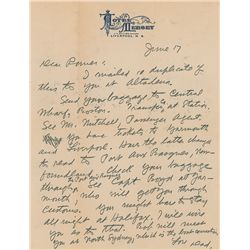 Hotel Mersey
LIVERPOOL, N. S.
June 17
Dear Pomeroy:
I mailed a duplicate of
this to you at Altadena.
Send your baggage to Central
Wharf, Boston. "Transfer" at Station.
See Mr. Mitchell, Passenger Agent.
you have tickets to Yarmouth
and Liverpool. Have the latter changed
to read to Port Aux Basques, New-
foundland. Check your baggage
through. See Capt Boyd at Yar-
mouth; who will get you through
Customs. You might have to stay
all night at Halifax. I will wire
you as to that. Prof will meet
you at North Sydney, which is the best number
for road.